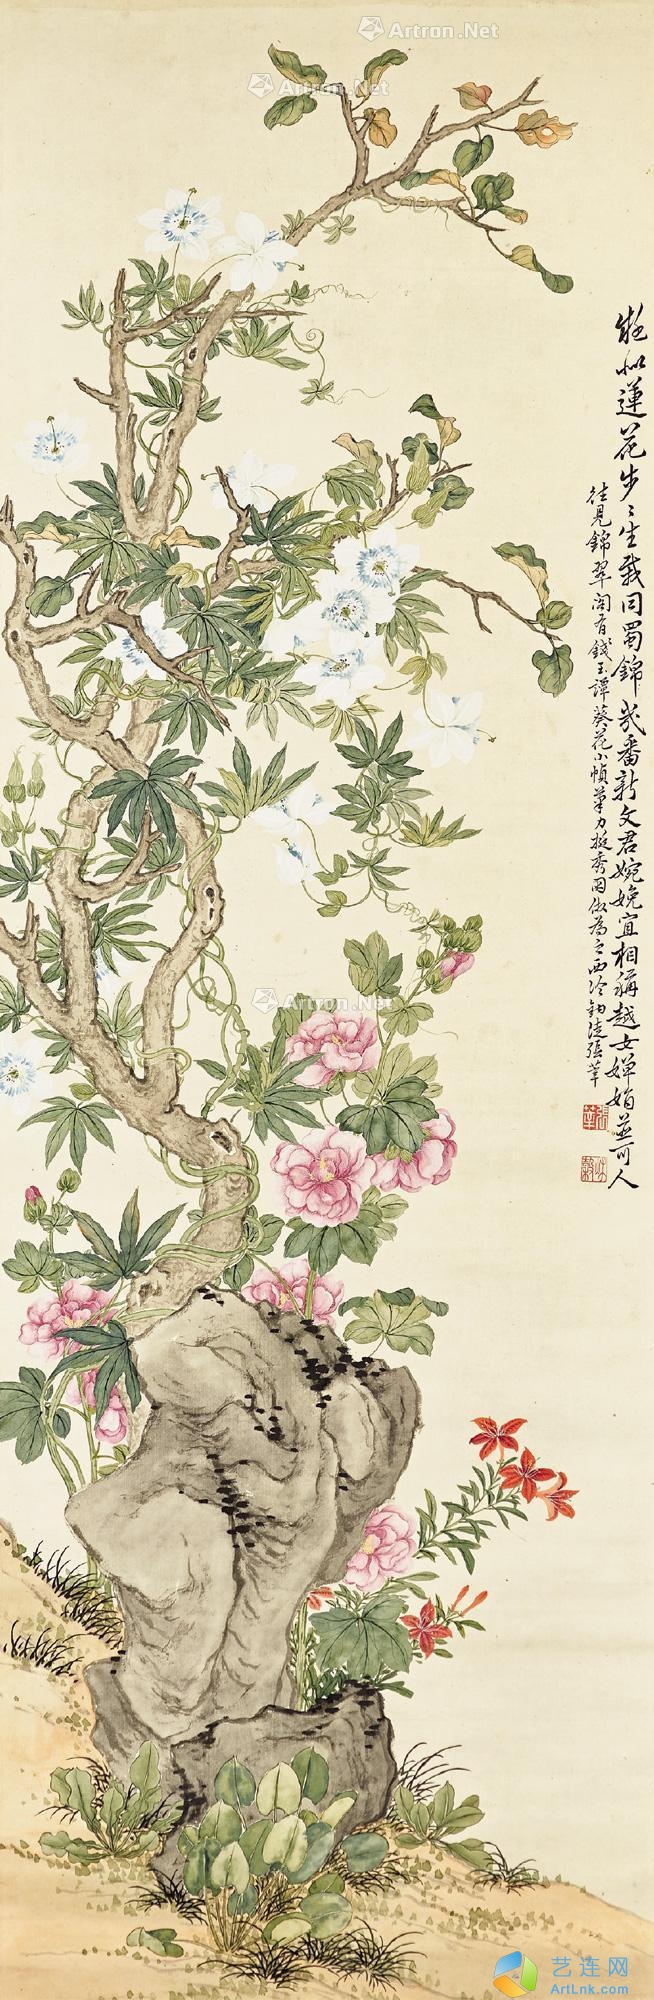 Artron.Net
Artron.Net
疑似蓮花步々生裁同蜀錦幾番新文君婉娩宜相稱越女嬋娟並可人
往見錦翠閣有錢玉譚葵花小幀筆力挺秀因仿為之西泠釣徒張莘
張莘
Artron.Net
艺连网
ArtLnk.com